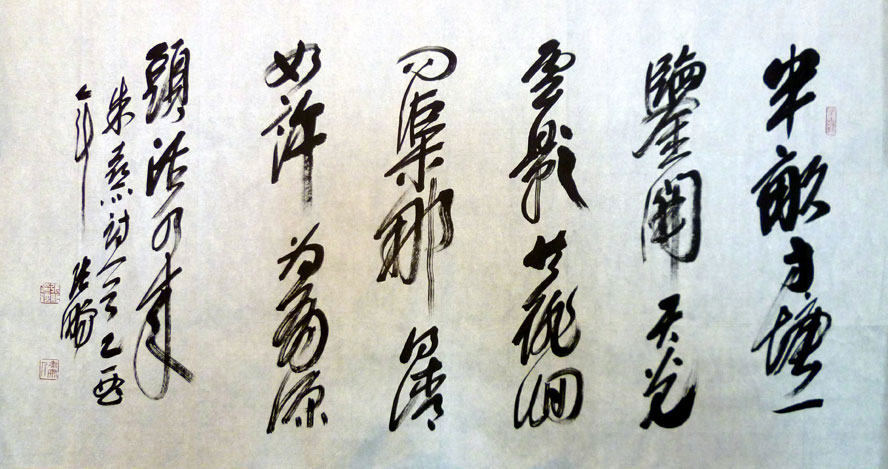 半畝方塘一
鑒開天光
雲影共徘徊
問渠那得清
如許為有源
頭活水來
朱熹詩一首乙酉
年